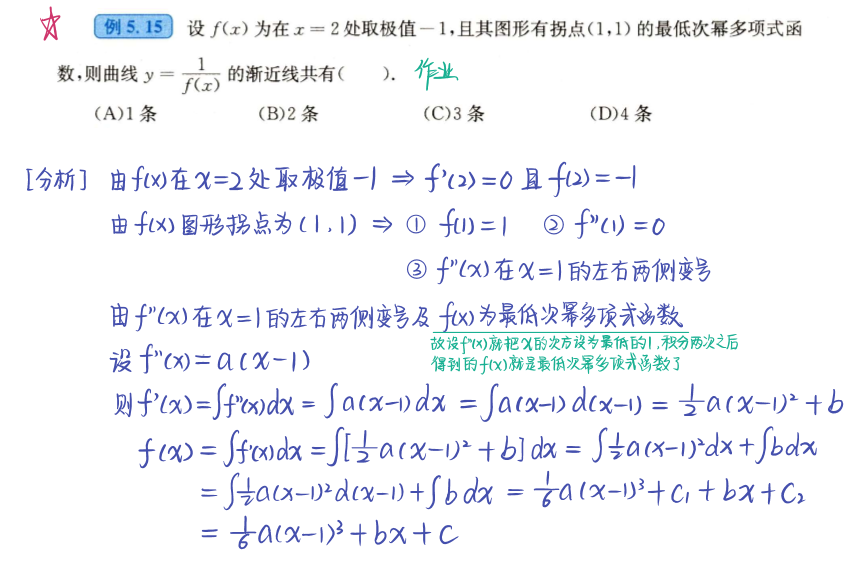 例 5.15 设 f(x) 为在 x = 2 处取极值 -1,且其图形有拐点(1,1) 的最低次幂多项式函
数,则曲线 y = 1/f(x) 的渐近线共有( ). 作业
(A)1 条 (B)2 条 (C)3 条 (D)4 条
[分析] 由f(x)在x=2处取极值-1 ⇒ f'(2)=0 且 f(2)=-1
由f(x)图形拐点为(1,1) ⇒ ① f(1)=1 ② f''(1)=0
③ f''(x)在x=1的左右两侧变号
由f''(x)在x=1的左右两侧变号及 f(x)为最低次幂多项式函数
故设f''(x)就把x的次方设为最低的1,积分两次之后
得到的f(x)就是最低次幂多项式函数了
设 f''(x)=a(x-1)
则f'(x)=∫f''(x)dx = ∫a(x-1)dx = ∫a(x-1)d(x-1) = ½a(x-1)²+b
f(x)=∫f'(x)dx=∫[½a(x-1)²+b]dx = ∫½a(x-1)²dx+∫bdx
= ∫½a(x-1)²d(x-1)+∫bdx = ⅙a(x-1)³+C₁+bx+C₂
= ⅙a(x-1)³+bx+C